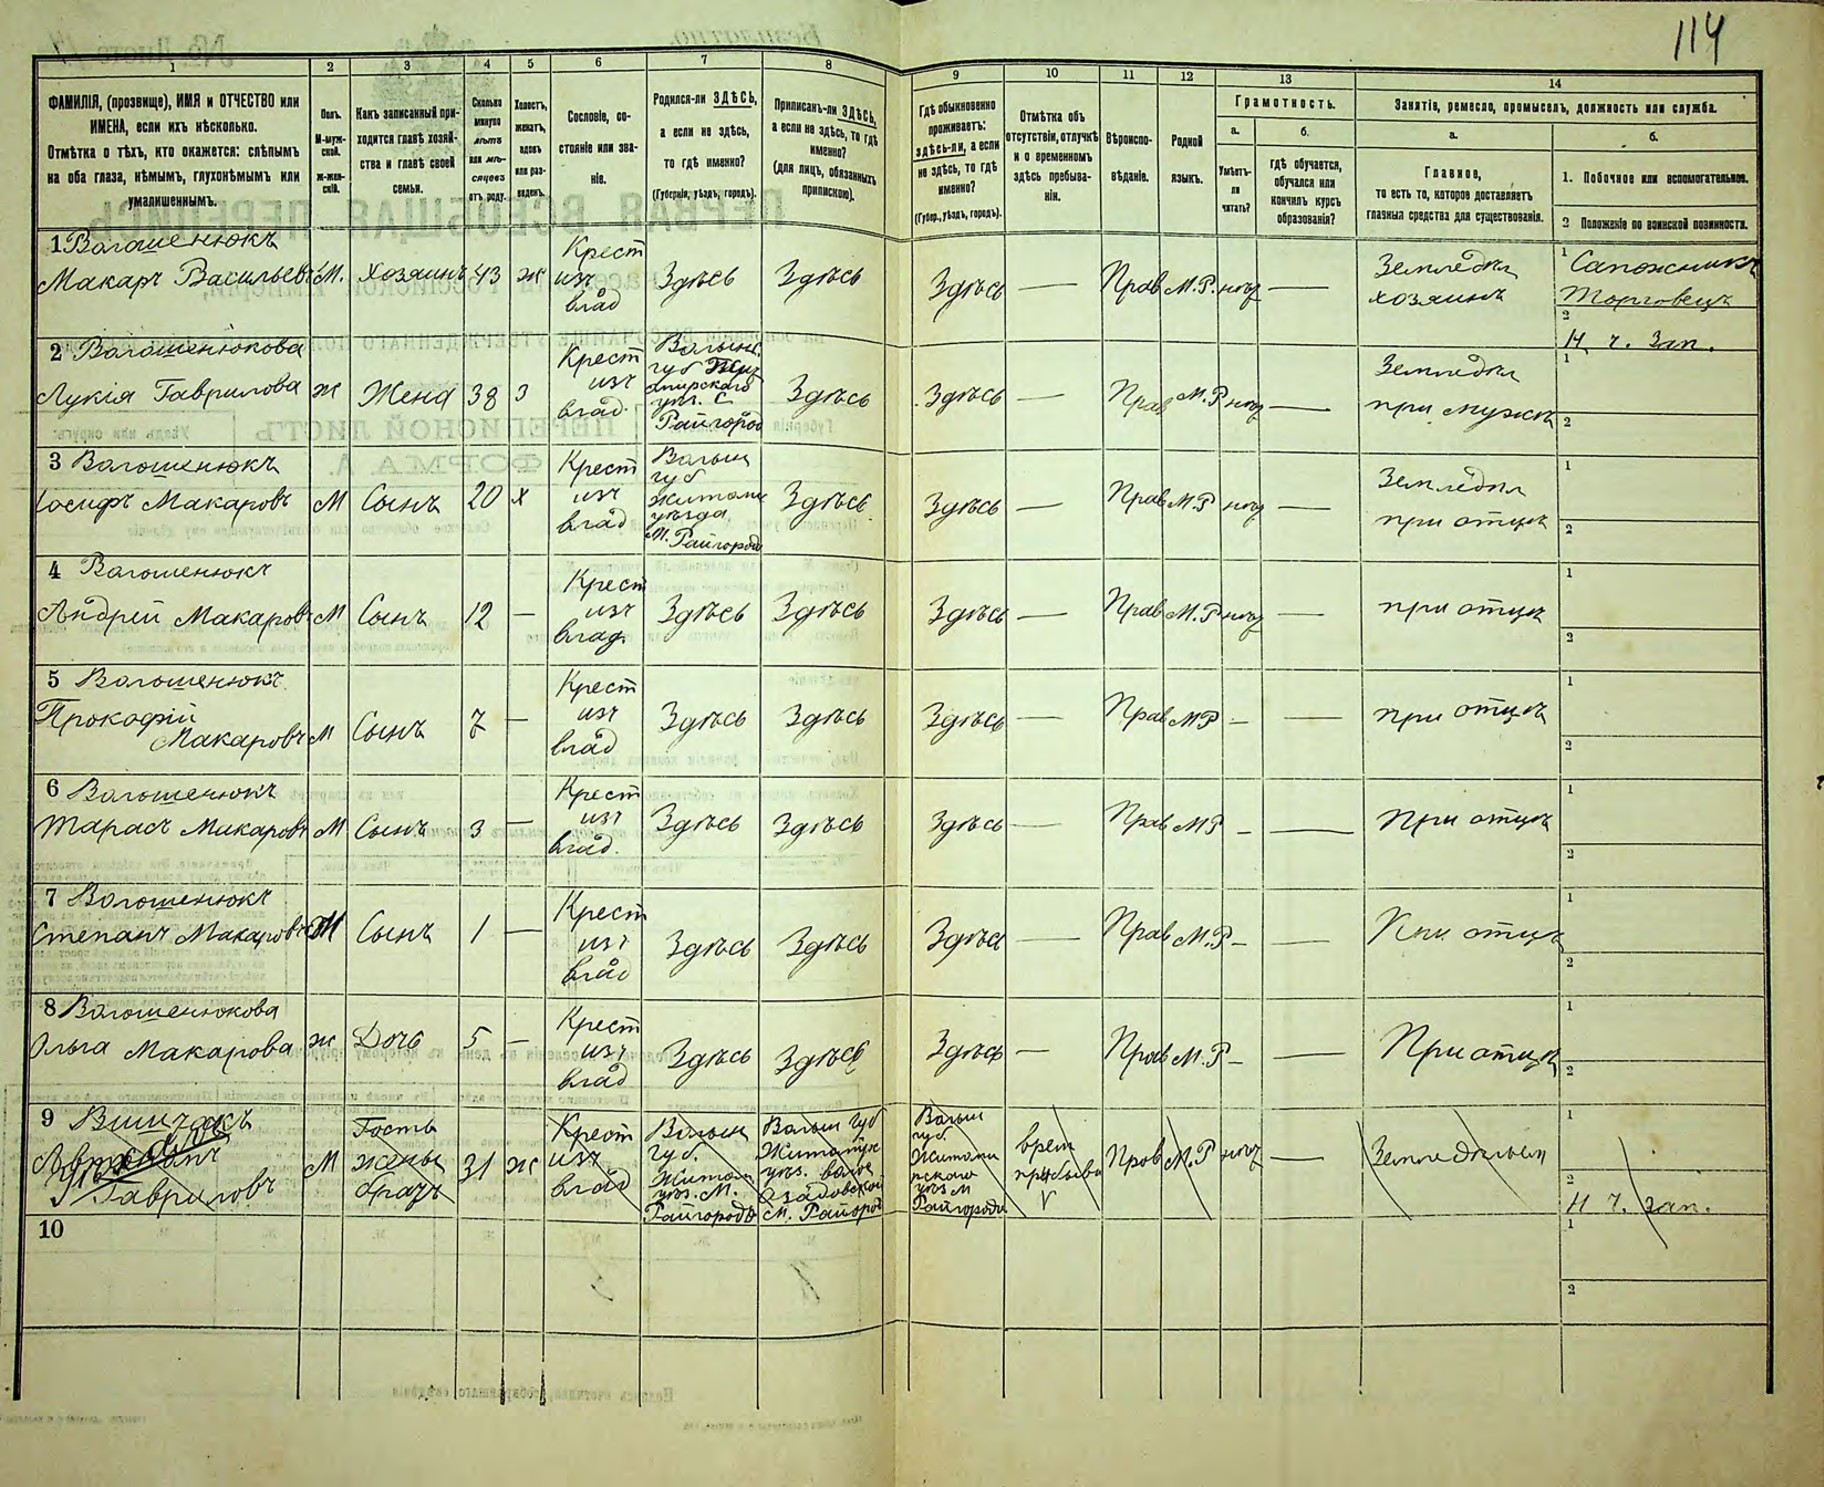 114
1
2
3
4
5
6
7
8
9
10
11
12
13
14
ФАМИЛІЯ, (прозвище), ИМЯ и ОТЧЕСТВО или
ИМЕНА, если ихъ нѣсколько.
Отмѣтка о тѣхъ, кто окажется: слѣпымъ
на оба глаза, нѣмымъ, глухонѣмымъ или
умалишеннымъ.
Полъ.
М-муж-
ской.
ж-жен-
скій.
Какъ записанный при-
ходится главѣ хозяй-
ства и главѣ своей
семьи.
Сколько
минуло
лѣтъ
или мѣ-
сяцевъ
отъ роду.
Холостъ,
женатъ,
вдовъ
или раз-
веденъ.
Сословіе, со-
стояніе или зва-
ніе.
Родился-ли ЗДѢСЬ,
а если не здѣсь,
то гдѣ именно?
(Губернія, уѣздъ, городъ).
Приписанъ-ли ЗДѢСЬ,
а если не здѣсь, то гдѣ
именно?
(для лицъ, обязанныхъ
припискою).
Гдѣ обыкновенно
проживаетъ:
здѣсь-ли, а если
не здѣсь, то гдѣ
именно?
(Губер., уѣздъ, городъ).
Отмѣтка объ
отсутствіи, отлучкѣ
и о временномъ
здѣсь пребыва-
ніи.
Вѣроиспо-
вѣданіе.
Родной
языкъ.
Грамотность.
а.
б.
Умѣетъ-
ли
читать?
гдѣ обучается,
обучался или
кончилъ курсъ
образованія?
Занятія, ремесло, промыселъ, должность или служба.
а.
б.
Главное,
то есть то, которое доставляетъ
главныя средства для существованія.
1. Побочное или вспомогательное.
2 Положеніе по воинской повинности.
1 Волошенюкъ
Макаръ Васильевъ М. Хозяинъ 43 ж Крест изъ влад Здѣсь Здѣсь Здѣсь — Прав М.Р. нѣтъ — Земледѣл хозяинъ
1 Сапожникъ
Торговецъ
2
Н. ч. Зап.
2 Волошенюкова
Лукія Гаврилова ж Жена 38 з Крест изъ влад.
Волынс.
губ
уѣз. с
Райгород
Здѣсь Здѣсь — Прав М.Р нѣтъ — Земледѣл при мужѣ
1
2
3 Волошенюкъ
Іосифъ Макаровъ М Сынъ 20 х Крест изъ влад
Волын
губ
Житоми
уѣзда
м. Райгородъ
Здѣсь Здѣсь — Прав М.Р нѣтъ — Земледѣл при отцѣ
1
2
4 Волошенюкъ
Андрей Макаровъ М Сынъ 12 — Крест изъ влад. Здѣсь Здѣсь Здѣсь — Прав М.Р нѣтъ — при отцѣ
1
2
5 Волошенюкъ
Прокофій
Макаровъ М Сынъ 7 — Крест изъ влад Здѣсь Здѣсь Здѣсь — Прав МР — — при отцѣ
1
2
6 Волошенюкъ
Тарасъ Макаровъ М Сынъ 3 — Крест изъ влад. Здѣсь Здѣсь Здѣсь — Прав МР — — При отцѣ
1
2
7 Волошенюкъ
Степанъ Макаровъ М Сынъ 1 — Крест изъ влад Здѣсь Здѣсь Здѣсь — Прав М.Р — — При отцѣ
1
2
8 Волошенюкова
Ольга Макарова ж Дочь 5 — Крест изъ влад Здѣсь Здѣсь Здѣсь — Прав М.Р — — При отцѣ
1
2
9
Гавриловъ М
Гость
жены
братъ
31 ж Крест изъ влад
Волын
губ.
Житом
уѣз. М.
Райгородъ
Волын губ
уѣз. воло
м. Райгород
Волын
губ.
Житоми
рскаго
уѣз м
Райгородъ
врем
Прав М.Р нѣтъ —
1
2
Н ч. зап.
10
1
2